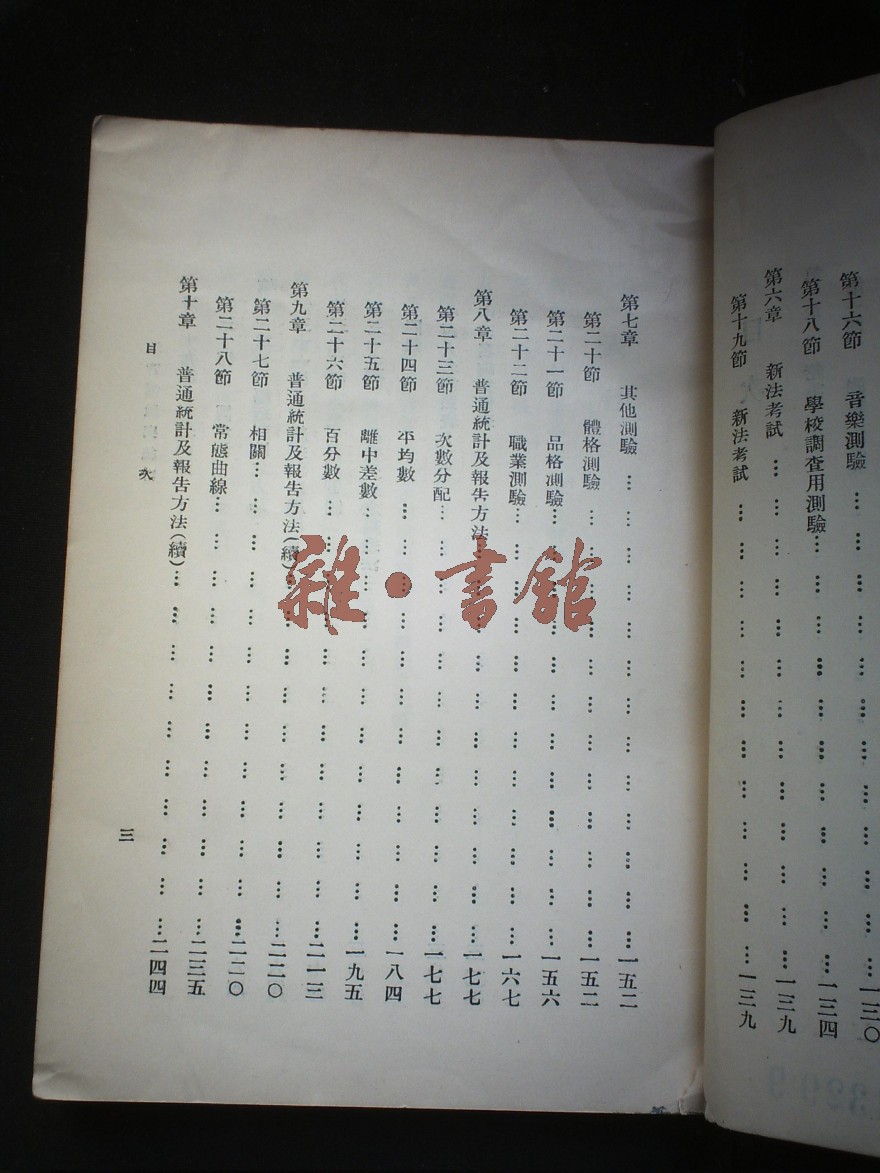 第十六節 音樂測驗 … … … … … … … … … … … … 一三〇
第十八節 學校調查用測驗 … … … … … … … … … … … 一三四
第六章 新法考試 … … … … … … … … … … … … 一三九
第十九節 新法考試 … … … … … … … … … … … 一三九
第七章 其他測驗 … … … … … … … … … … … … 一五二
第二十節 體格測驗 … … … … … … … … … … … 一五二
第二十一節 品格測驗 … … … … … … … … … … … 一五六
第二十二節 職業測驗 … … … … … … … … … … … 一六七
第八章 普通統計及報告方法 … … … … … … … … … … 一七七
第二十三節 次數分配 … … … … … … … … … … … 一七七
第二十四節 平均數 … … … … … … … … … … … 一八四
第二十五節 離中差數 … … … … … … … … … … … 一九五
第二十六節 百分數 … … … … … … … … … … … 二一三
第九章 普通統計及報告方法(續) … … … … … … … … … 二二〇
第二十七節 相關 … … … … … … … … … … … … 二二〇
第二十八節 常態曲線 … … … … … … … … … … … 二三五
第十章 普通統計及報告方法(續) … … … … … … … … … 二四四
目次
三
雜·書館